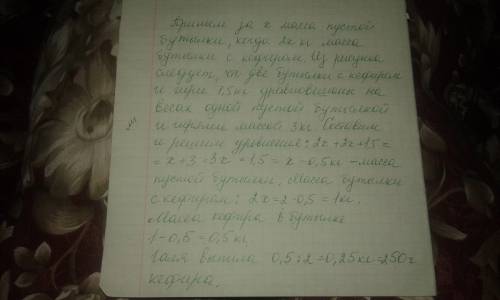 Примем за x масса пустой
бутылки, когда 2x кг масса
бутылки с кефиром. Из рисунка
следует, что две бутылки с кефиром
и гири 1,5 кг уравновешены на
весах одной пустой бутылкой
и гирями массой 3 кг. Составим
и решим уравнение: 2x+2x+1,5=
=x+3=3x=1,5=x=0,5 кг - масса
пустой бутылки. Масса бутылки
с кефиром: 2x=2·0,5=1 кг.
Масса кефира в бутылке
1-0,5=0,5 кг
Галя выпила 0,5:2=0,25 кг=250 г
кефира.